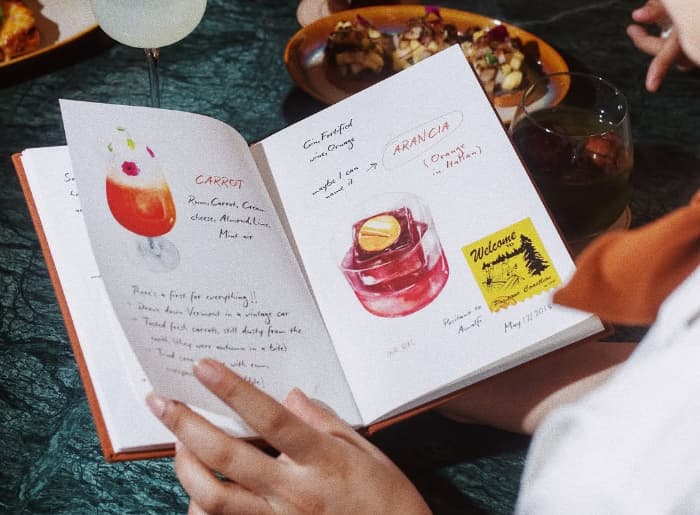 CARROT
Rum, Carrot, Cream
cheese, Almond, Lime,
Mint air
There's a first for everything!!
- Drove down Vermont in a vintage car
- Tasted fresh carrots, still dusty from the
earth (they were autumn in a bite)
with rum,
Gin, Fortified
wine, Orange
maybe I can
name it
ARANCIA
(Orange
in Italian)
Welcome
TO
Positano to
Amalfi
May 17/2018